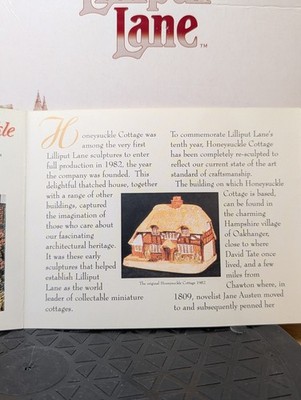 Lilliput
Lane™
kle
Honeysuckle Cottage was
among the very first
Lilliput Lane sculptures to enter
full production in 1982, the year
the company was founded. This
delightful thatched house, together
with a range of other
buildings, captured
the imagination of
those who care about
our fascinating
architectural heritage.
It was these early
sculptures that helped
establish Lilliput
Lane as the world
leader of collectable miniature
cottages.
To commemorate Lilliput Lane's
tenth year, Honeysuckle Cottage
has been completely re-sculpted to
reflect our current state of the art
standard of craftsmanship.
The building on which Honeysuckle
Cottage is based,
can be found in
the charming
Hampshire village
of Oakhanger,
close to where
David Tate once
lived, and a few
miles from
Chawton where, in
1809, novelist Jane Austen moved
to and subsequently penned her
The original Honeysuckle Cottage 1982